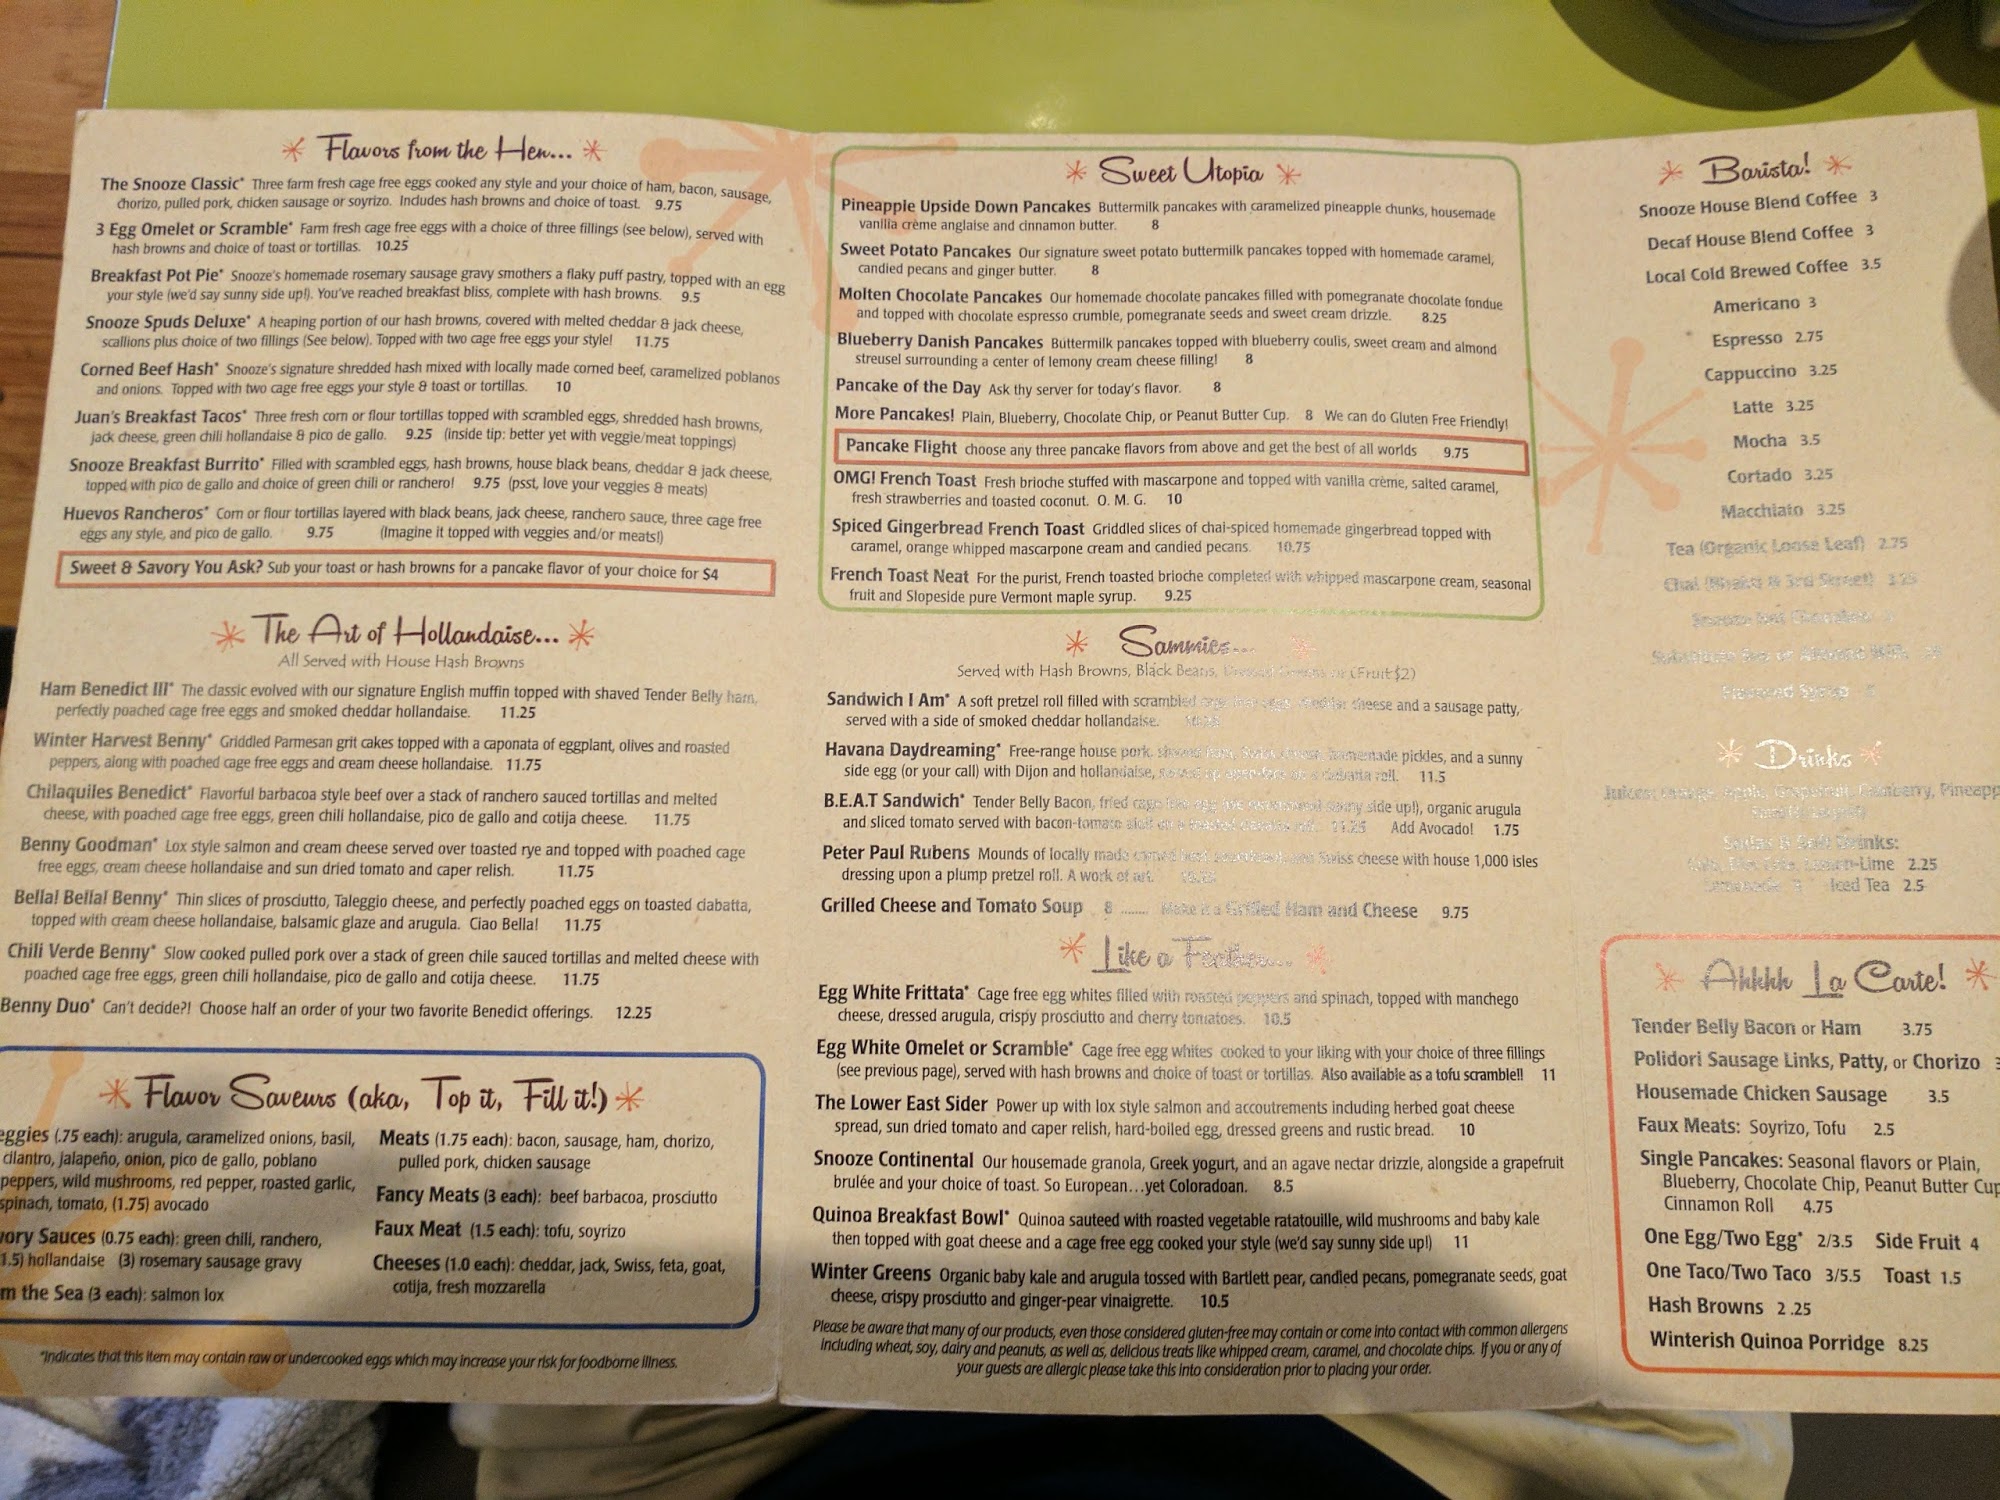 Flavors from the Hen...
The Snooze Classic* Three farm fresh cage free eggs cooked any style and your choice of ham, bacon, sausage,
chorizo, pulled pork, chicken sausage or soyrizo. Includes hash browns and choice of toast. 9.75
3 Egg Omelet or Scramble* Farm fresh cage free eggs with a choice of three fillings (see below), served with
hash browns and choice of toast or tortillas. 10.25
Breakfast Pot Pie* Snooze's homemade rosemary sausage gravy smothers a flaky puff pastry, topped with an egg
your style (we'd say sunny side up!). You've reached breakfast bliss, complete with hash browns. 9.5
Snooze Spuds Deluxe* A heaping portion of our hash browns, covered with melted cheddar & jack cheese,
scallions plus choice of two fillings (See below). Topped with two cage free eggs your style! 11.75
Corned Beef Hash* Snooze's signature shredded hash mixed with locally made corned beef, caramelized poblanos
and onions. Topped with two cage free eggs your style & toast or tortillas. 10
Juan's Breakfast Tacos* Three fresh corn or flour tortillas topped with scrambled eggs, shredded hash browns,
jack cheese, green chili hollandaise & pico de gallo. 9.25 (inside tip: better yet with veggie/meat toppings)
Snooze Breakfast Burrito* Filled with scrambled eggs, hash browns, house black beans, cheddar & jack cheese,
topped with pico de gallo and choice of green chili or ranchero! 9.75 (psst, love your veggies & meats)
Huevos Rancheros* Corn or flour tortillas layered with black beans, jack cheese, ranchero sauce, three cage free
eggs any style, and pico de gallo. 9.75 (Imagine it topped with veggies and/or meats!)
Sweet & Savory You Ask? Sub your toast or hash browns for a pancake flavor of your choice for $4
The Art of Hollandaise...
All Served with House Hash Browns
Ham Benedict III* The classic evolved with our signature English muffin topped with shaved Tender Belly ham,
perfectly poached cage free eggs and smoked cheddar hollandaise. 11.25
Winter Harvest Benny* Griddled Parmesan grit cakes topped with a caponata of eggplant, olives and roasted
peppers, along with poached cage free eggs and cream cheese hollandaise. 11.75
Chilaquiles Benedict* Flavorful barbacoa style beef over a stack of ranchero sauced tortillas and melted
cheese, with poached cage free eggs, green chili hollandaise, pico de gallo and cotija cheese. 11.75
Benny Goodman* Lox style salmon and cream cheese served over toasted rye and topped with poached cage
free eggs, cream cheese hollandaise and sun dried tomato and caper relish. 11.75
Bella! Bella! Benny* Thin slices of prosciutto, Taleggio cheese, and perfectly poached eggs on toasted ciabatta,
topped with cream cheese hollandaise, balsamic glaze and arugula. Ciao Bella! 11.75
Chili Verde Benny* Slow cooked pulled pork over a stack of green chile sauced tortillas and melted cheese with
poached cage free eggs, green chili hollandaise, pico de gallo and cotija cheese. 11.75
Benny Duo* Can't decide?! Choose half an order of your two favorite Benedict offerings. 12.25
Flavor Saveurs (aka, Top it, Fill it!)
eggies (.75 each): arugula, caramelized onions, basil,
cilantro, jalapeño, onion, pico de gallo, poblano
peppers, wild mushrooms, red pepper, roasted garlic,
spinach, tomato, (1.75) avocado
vory Sauces (0.75 each): green chili, ranchero,
1.5) hollandaise (3) rosemary sausage gravy
m the Sea (3 each): salmon lox
Meats (1.75 each): bacon, sausage, ham, chorizo,
pulled pork, chicken sausage
Fancy Meats (3 each): beef barbacoa, prosciutto
Faux Meat (1.5 each): tofu, soyrizo
Cheeses (1.0 each): cheddar, jack, Swiss, feta, goat,
cotija, fresh mozzarella
*Indicates that this item may contain raw or undercooked eggs which may increase your risk for foodborne illness.
Sweet Utopia
Pineapple Upside Down Pancakes Buttermilk pancakes with caramelized pineapple chunks, housemade
vanilla crème anglaise and cinnamon butter. 8
Sweet Potato Pancakes Our signature sweet potato buttermilk pancakes topped with homemade caramel,
candied pecans and ginger butter. 8
Molten Chocolate Pancakes Our homemade chocolate pancakes filled with pomegranate chocolate fondue
and topped with chocolate espresso crumble, pomegranate seeds and sweet cream drizzle. 8.25
Blueberry Danish Pancakes Buttermilk pancakes topped with blueberry coulis, sweet cream and almond
streusel surrounding a center of lemony cream cheese filling! 8
Pancake of the Day Ask thy server for today's flavor. 8
More Pancakes! Plain, Blueberry, Chocolate Chip, or Peanut Butter Cup. 8 We can do Gluten Free Friendly!
Pancake Flight choose any three pancake flavors from above and get the best of all worlds 9.75
OMG! French Toast Fresh brioche stuffed with mascarpone and topped with vanilla crème, salted caramel,
fresh strawberries and toasted coconut. O. M. G. 10
Spiced Gingerbread French Toast Griddled slices of chai-spiced homemade gingerbread topped with
caramel, orange whipped mascarpone cream and candied pecans. 10.75
French Toast Neat For the purist, French toasted brioche completed with whipped mascarpone cream, seasonal
fruit and Slopeside pure Vermont maple syrup. 9.25
Sammies...
Served with Hash Browns, Black Beans, or (Fruit $2)
Sandwich I Am* A soft pretzel roll filled with scrambled cheese and a sausage patty,
served with a side of smoked cheddar hollandaise.
Havana Daydreaming* Free-range house pork, homemade pickles, and a sunny
side egg (or your call) with Dijon and hollandaise, roll. 11.5
B.E.A.T Sandwich* Tender Belly Bacon, fried side up!), organic arugula
and sliced tomato served with bacon-tomato 11.25 Add Avocado! 1.75
Peter Paul Rubens Mounds of locally made Swiss cheese with house 1,000 isles
dressing upon a plump pretzel roll. A work of art.
Grilled Cheese and Tomato Soup 8 ........ Make it a Grilled Ham and Cheese 9.75
Like a Feather...
Egg White Frittata* Cage free egg whites filled with roasted peppers and spinach, topped with manchego
cheese, dressed arugula, crispy prosciutto and cherry tomatoes. 10.5
Egg White Omelet or Scramble* Cage free egg whites cooked to your liking with your choice of three fillings
(see previous page), served with hash browns and choice of toast or tortillas. Also available as a tofu scramble!! 11
The Lower East Sider Power up with lox style salmon and accoutrements including herbed goat cheese
spread, sun dried tomato and caper relish, hard-boiled egg, dressed greens and rustic bread. 10
Snooze Continental Our housemade granola, Greek yogurt, and an agave nectar drizzle, alongside a grapefruit
brulée and your choice of toast. So European...yet Coloradoan. 8.5
Quinoa Breakfast Bowl* Quinoa sauteed with roasted vegetable ratatouille, wild mushrooms and baby kale
then topped with goat cheese and a cage free egg cooked your style (we'd say sunny side up!) 11
Winter Greens Organic baby kale and arugula tossed with Bartlett pear, candied pecans, pomegranate seeds, goat
cheese, crispy prosciutto and ginger-pear vinaigrette. 10.5
Please be aware that many of our products, even those considered gluten-free may contain or come into contact with common allergens
including wheat, soy, dairy and peanuts, as well as, delicious treats like whipped cream, caramel, and chocolate chips. If you or any of
your guests are allergic please take this into consideration prior to placing your order.
Barista!
Snooze House Blend Coffee 3
Decaf House Blend Coffee 3
Local Cold Brewed Coffee 3.5
Americano 3
Espresso 2.75
Cappuccino 3.25
Latte 3.25
Mocha 3.5
Cortado 3.25
Macchiato 3.25
Tea (Organic Loose Leaf) 2.75
Chai (Bhakti & 3rd Street) 3.25
Drinks
Juices: Orange, Apple, Grapefruit, Cranberry, Pineapp
Drinks:
Lemon-Lime 2.25
Iced Tea 2.5
Ahhhh La Carte!
Tender Belly Bacon or Ham 3.75
Polidori Sausage Links, Patty, or Chorizo 3
Housemade Chicken Sausage 3.5
Faux Meats: Soyrizo, Tofu 2.5
Single Pancakes: Seasonal flavors or Plain,
Blueberry, Chocolate Chip, Peanut Butter Cup
Cinnamon Roll 4.75
One Egg/Two Egg* 2/3.5 Side Fruit 4
One Taco/Two Taco 3/5.5 Toast 1.5
Hash Browns 2.25
Winterish Quinoa Porridge 8.25